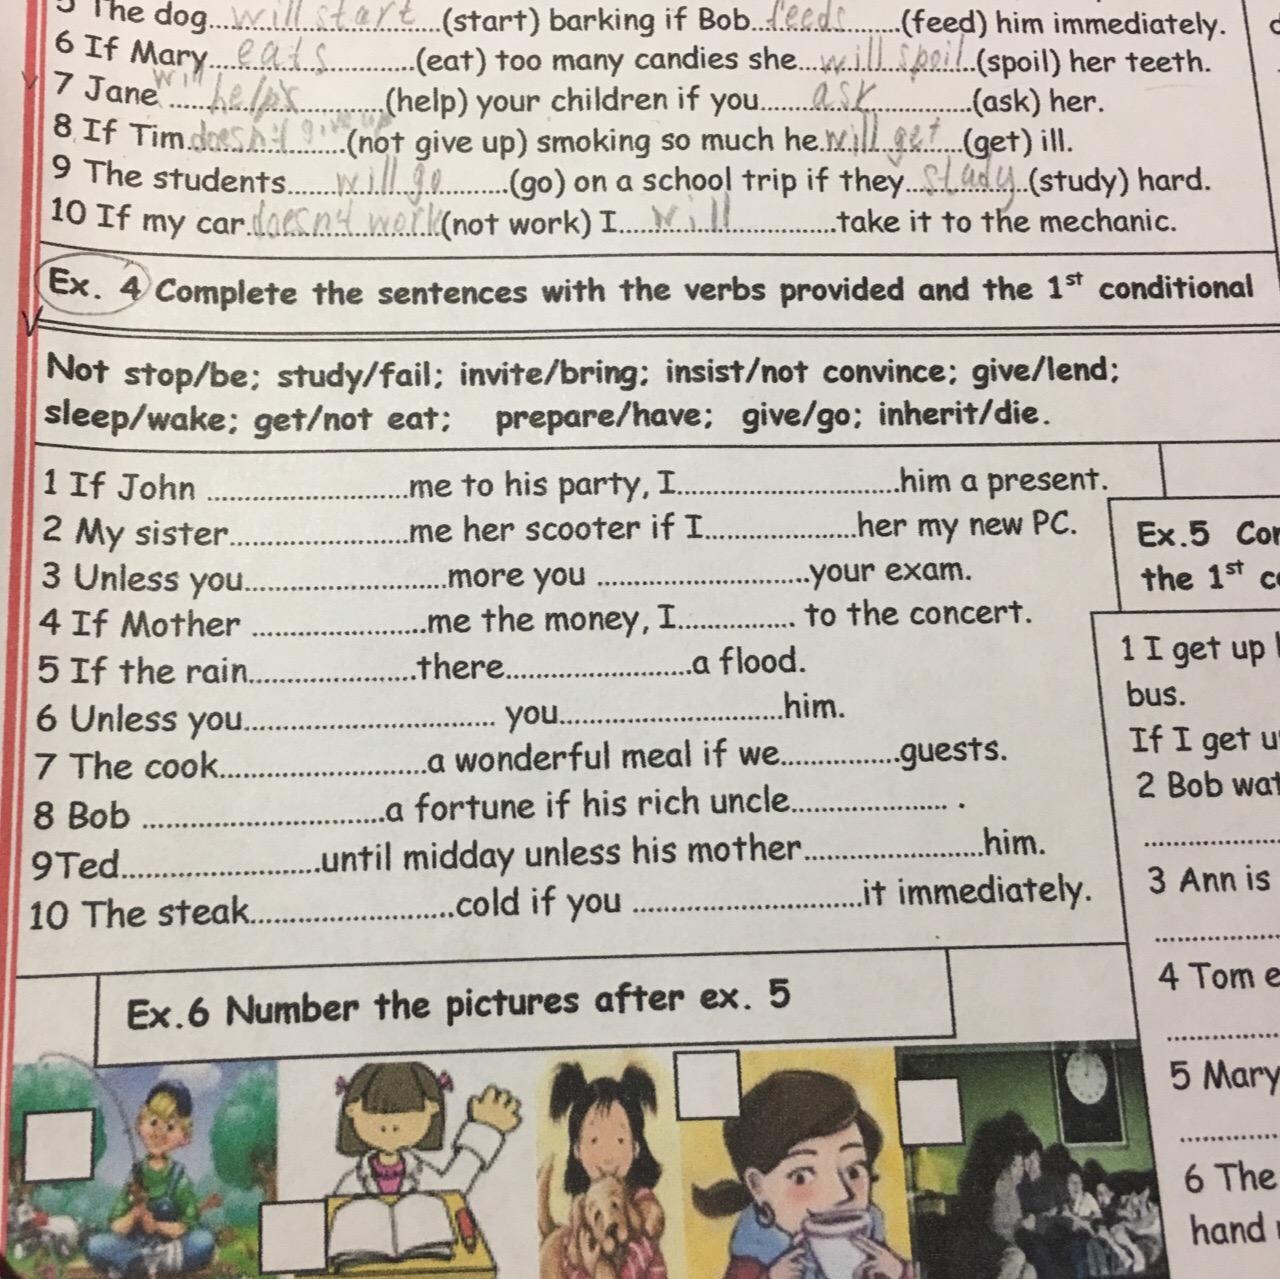 5 The dog...will start...(start) barking if Bob..feeds...(feed) him immediately.
6 If Mary...eats...(eat) too many candies she...will spoil...(spoil) her teeth.
7 Jane will...help...(help) your children if you...ask...(ask) her.
8 If Tim.doesn't give up...(not give up) smoking so much he.will get...(get) ill.
9 The students...will go...(go) on a school trip if they...study...(study) hard.
10 If my car.doesn't work(not work) I...will...take it to the mechanic.
Ex. 4 Complete the sentences with the verbs provided and the 1st conditional
Not stop/be; study/fail; invite/bring; insist/not convince; give/lend;
sleep/wake; get/not eat; prepare/have; give/go; inherit/die.
1 If John ...me to his party, I...him a present.
2 My sister...me her scooter if I...her my new PC.
3 Unless you...more you ...your exam.
4 If Mother ...me the money, I... to the concert.
5 If the rain...there...a flood.
6 Unless you... you...him.
7 The cook...a wonderful meal if we...guests.
8 Bob ...a fortune if his rich uncle... .
9Ted...until midday unless his mother...him.
10 The steak...cold if you ...it immediately.
Ex.6 Number the pictures after ex. 5
Ex.5
the 1st
1 I get up
bus.
If I get
2 Bob
3 Ann is
4 Tom
5 Mary
6 The
hand